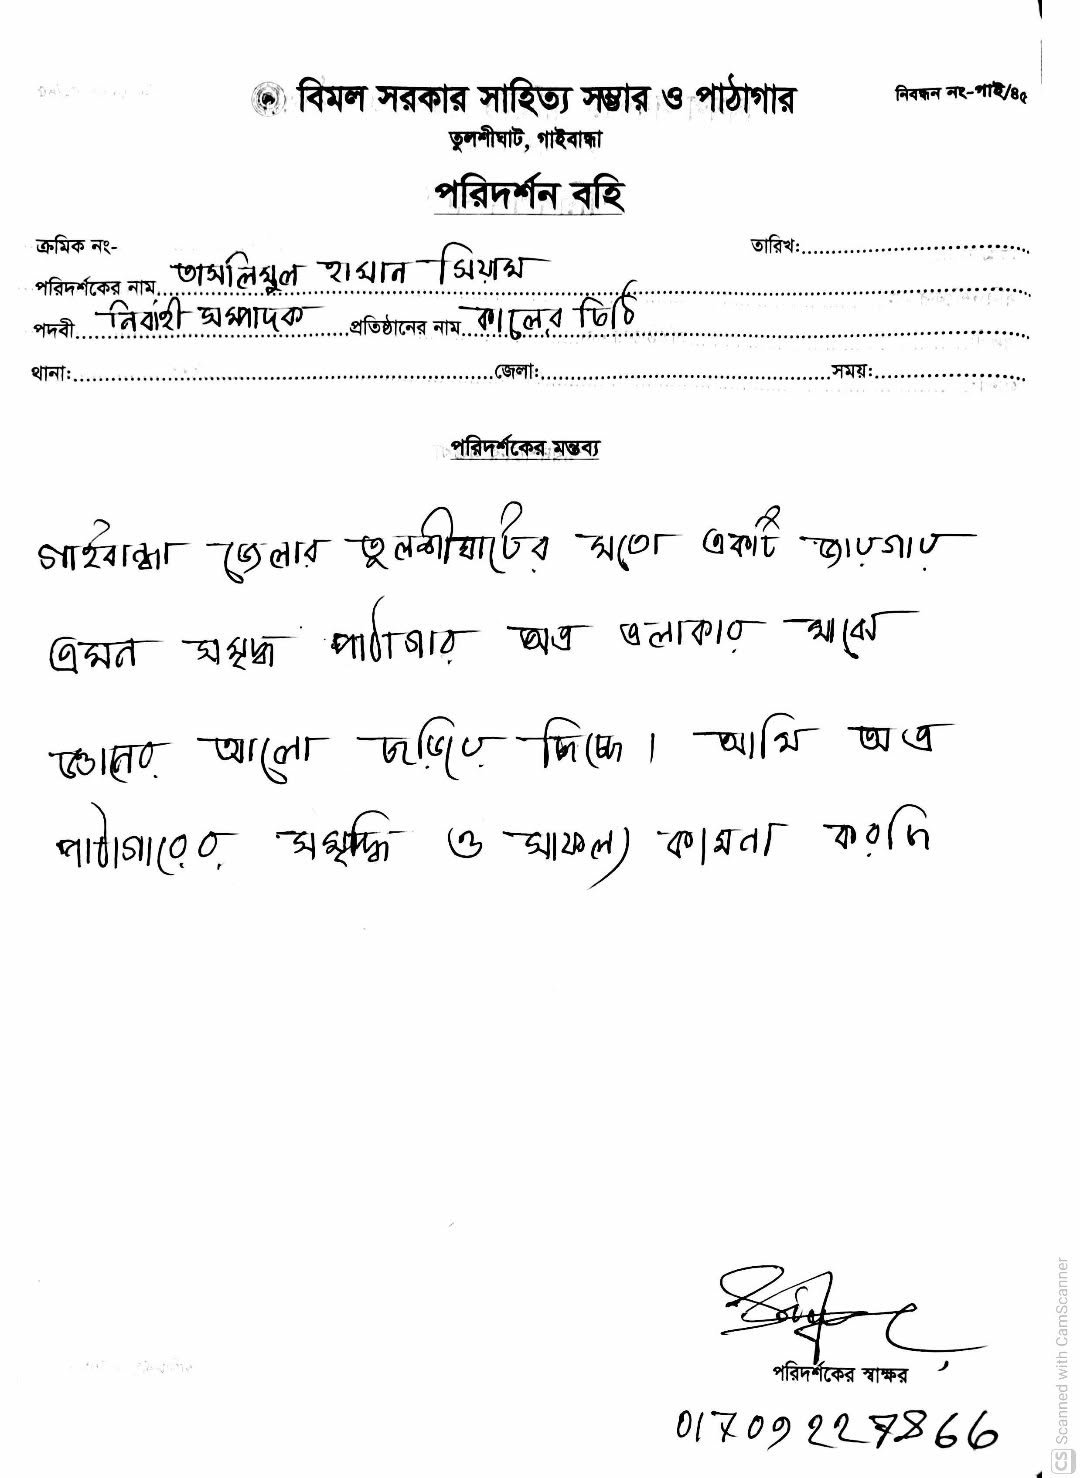 বিমল সরকার সাহিত্য সম্ভার ও পাঠাগার
নিবন্ধন নং-গাই/৪৫
তুলশীঘাট, গাইবান্ধা
পরিদর্শন বহি
ক্রমিক নং- তারিখ:
পরিদর্শকের নাম তাসলিমুল হাসান সিয়াম
পদবী নির্বাহী সম্পাদক প্রতিষ্ঠানের নাম কালের চিঠি
থানা: জেলা: সময়:
পরিদর্শকের মন্তব্য
গাইবান্ধা জেলার তুলশীঘাটের মতো একটি জায়গায়
এমন সমৃদ্ধ পাঠাগার অত্র এলাকার মাঝে
জ্ঞানের আলো ছড়িয়ে দিচ্ছে। আমি অত্র
পাঠাগারের সমৃদ্ধি ও সাফল্য কামনা করছি
পরিদর্শকের স্বাক্ষর
01709227866
CS Scanned with CamScanner